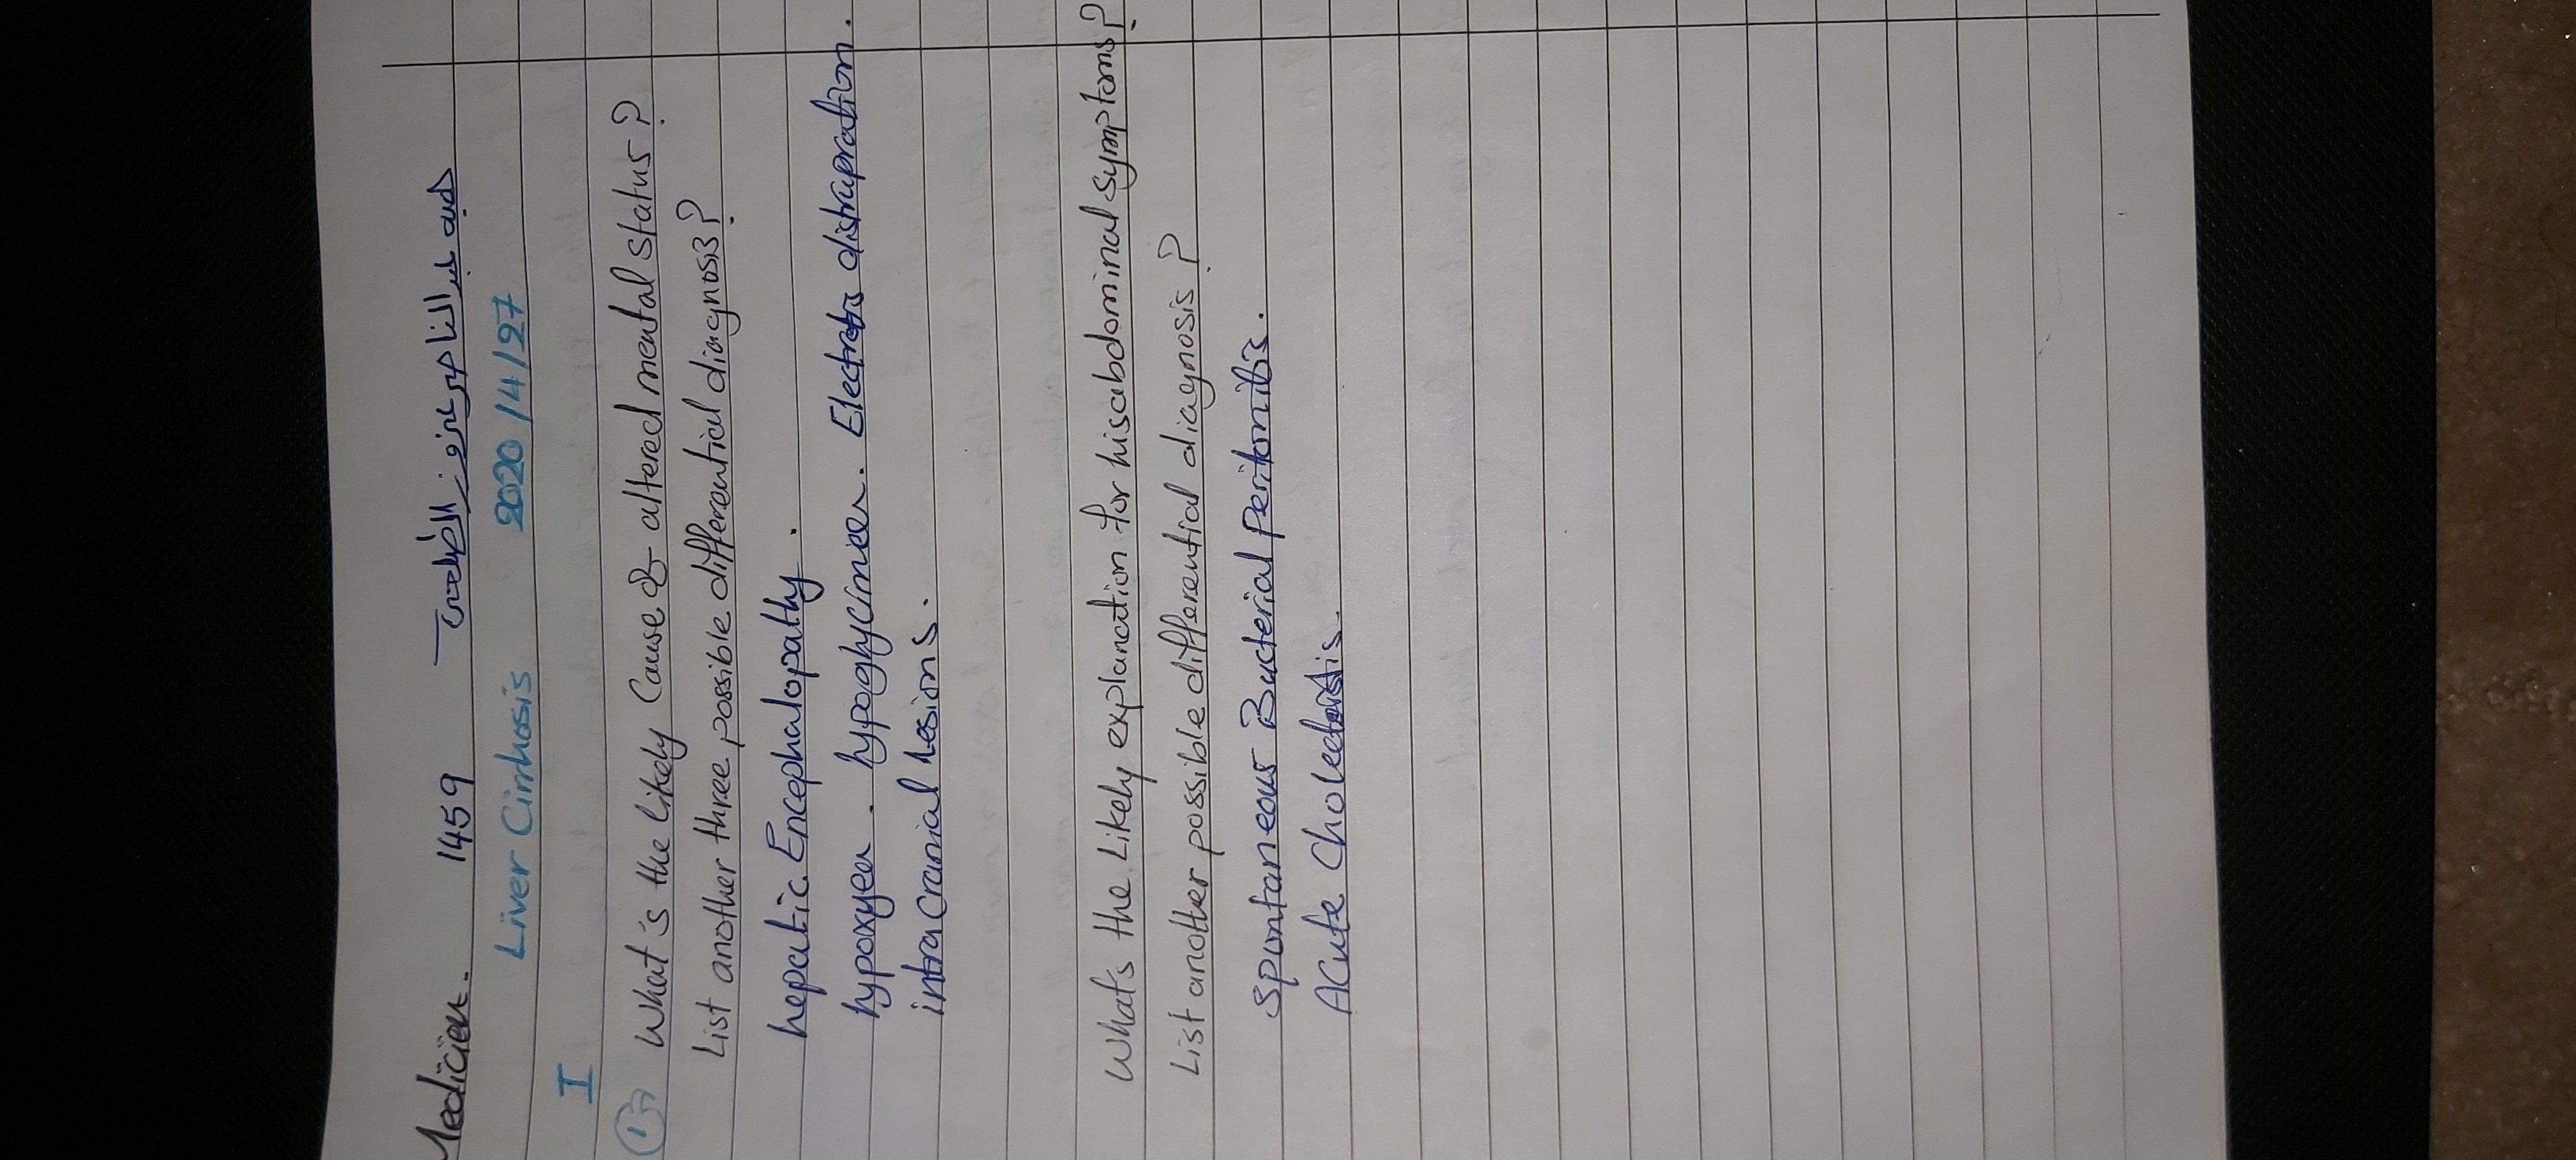 Medicien. 1459
Liver Cirrhosis 2020/4/27
I
1 What's the likely Cause of altered mental status?
List another three possible differential diagnosis?
hepatic Encephalopathy.
hypoxyea. hypoglycimea. Electrots distrupration.
intracranial lesions.
What's the Likely explanation for his abdominal symptoms?
List another possible differential diagnosis?
Spontaneous Bacterial Peritonitis.
Acute